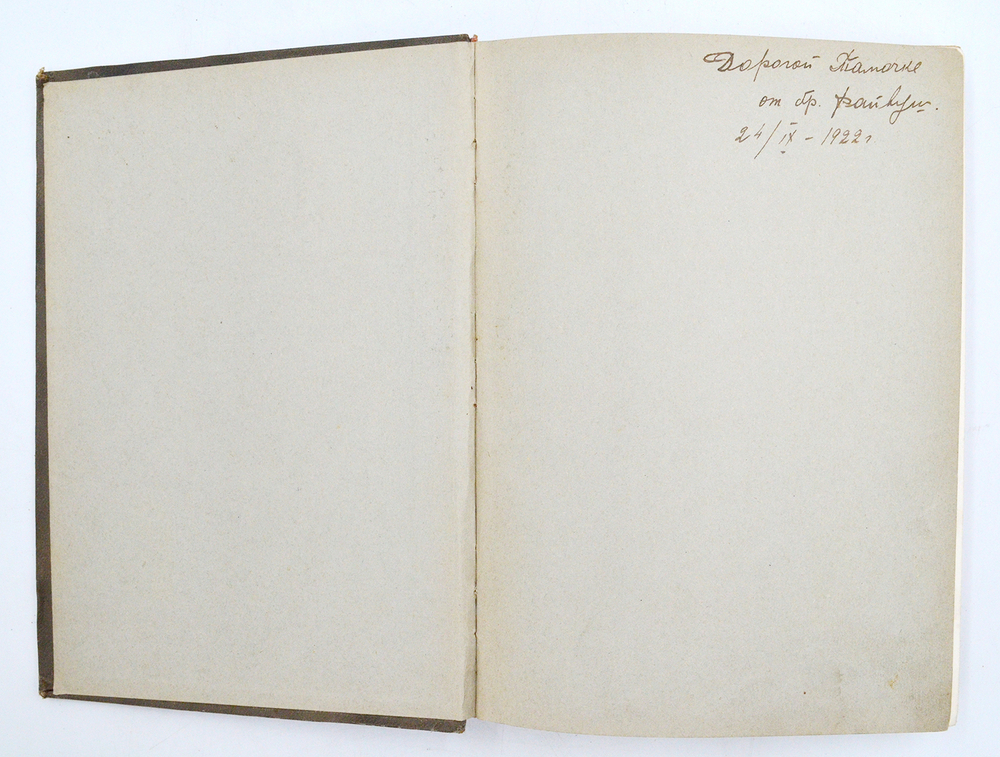 Дорогой Тамочке
от бр. Файвуш.
24/IX – 1922 г